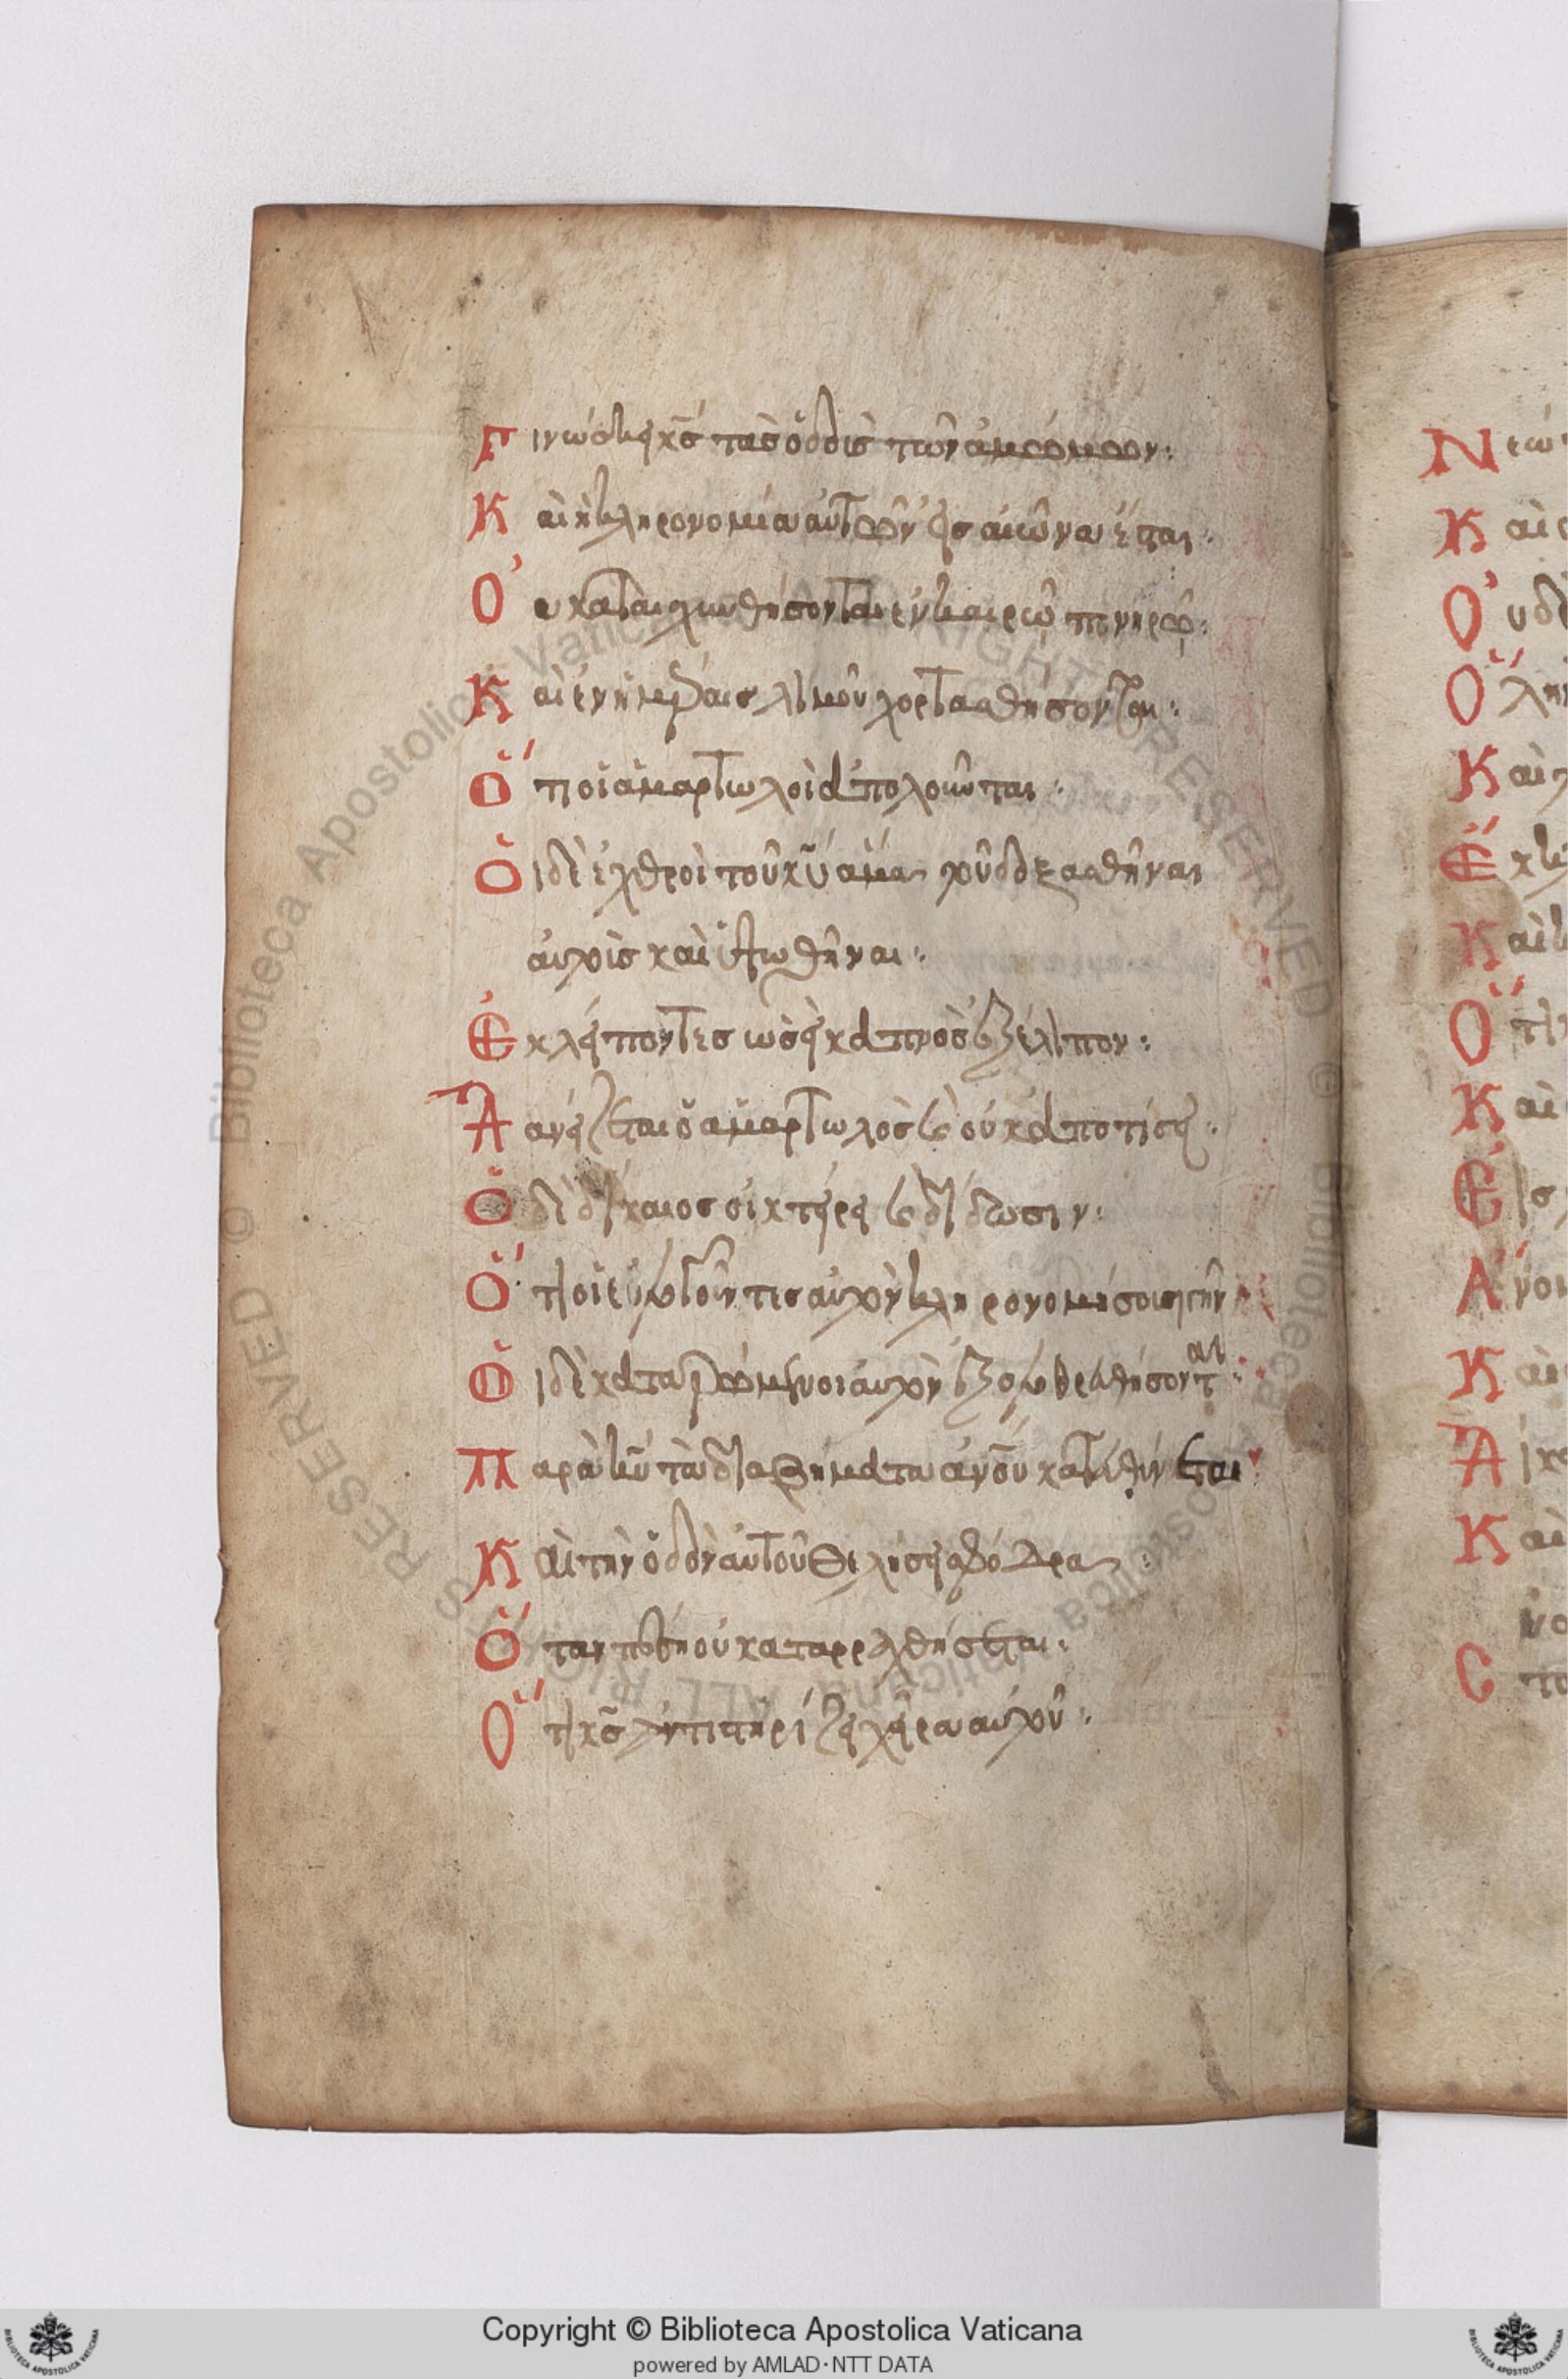 Γινώσκει κ̅ς̅ τὰσ ὁδοὺσ τῶν ἀμώμων:
Καὶ ἡ κληρονομία αὐτῶν εἰσ αἰῶνα ἔσται:
Οὐ καταισχυνθήσονται ἐν καιρῷ πονηρῷ:
Καὶ ἐν ἡμέραισ λιμοῦ χορτασθήσονται:
Ὅτι οἱ ἁμαρτωλοὶ ἀπολοῦνται:
Ὁι δὲ ἐχθροὶ τοῦ κ̅υ̅ ἅμα τοῦ δοξασθῆναι
αὐτοὺσ καὶ ὑψωθῆναι:
Ἐκλείποντεσ ὡσεὶ καπνὸσ ἐξέλιπον:
Δανείζεται ὁ ἁμαρτωλὸσ καὶ οὐκ ἀποτίσει:
Ὁ δὲ δίκαιοσ οἰκτείρει καὶ δίδωσιν:
Ὅτι οἱ εὐλογοῦντεσ αὐτὸν κληρονομήσουσι γῆν
Ὁι δὲ καταρώμενοι αὐτὸν ἐξολοθρευθήσονται:
Παρὰ κ̅υ̅ τὰ διαβήματα ἀν̅ο̅υ̅ κατευθύνεται
Καὶ τὴν ὁδὸν αὐτοῦ θελήσει σφόδρα:
Ὅταν πέσῃ οὐ καταρραχθήσεται:
Ὅτι κ̅ς̅ ἀντιστηρίζει χεῖρα αὐτοῦ:
Copyright © Biblioteca Apostolica Vaticana
powered by AMLAD·NTT DATA